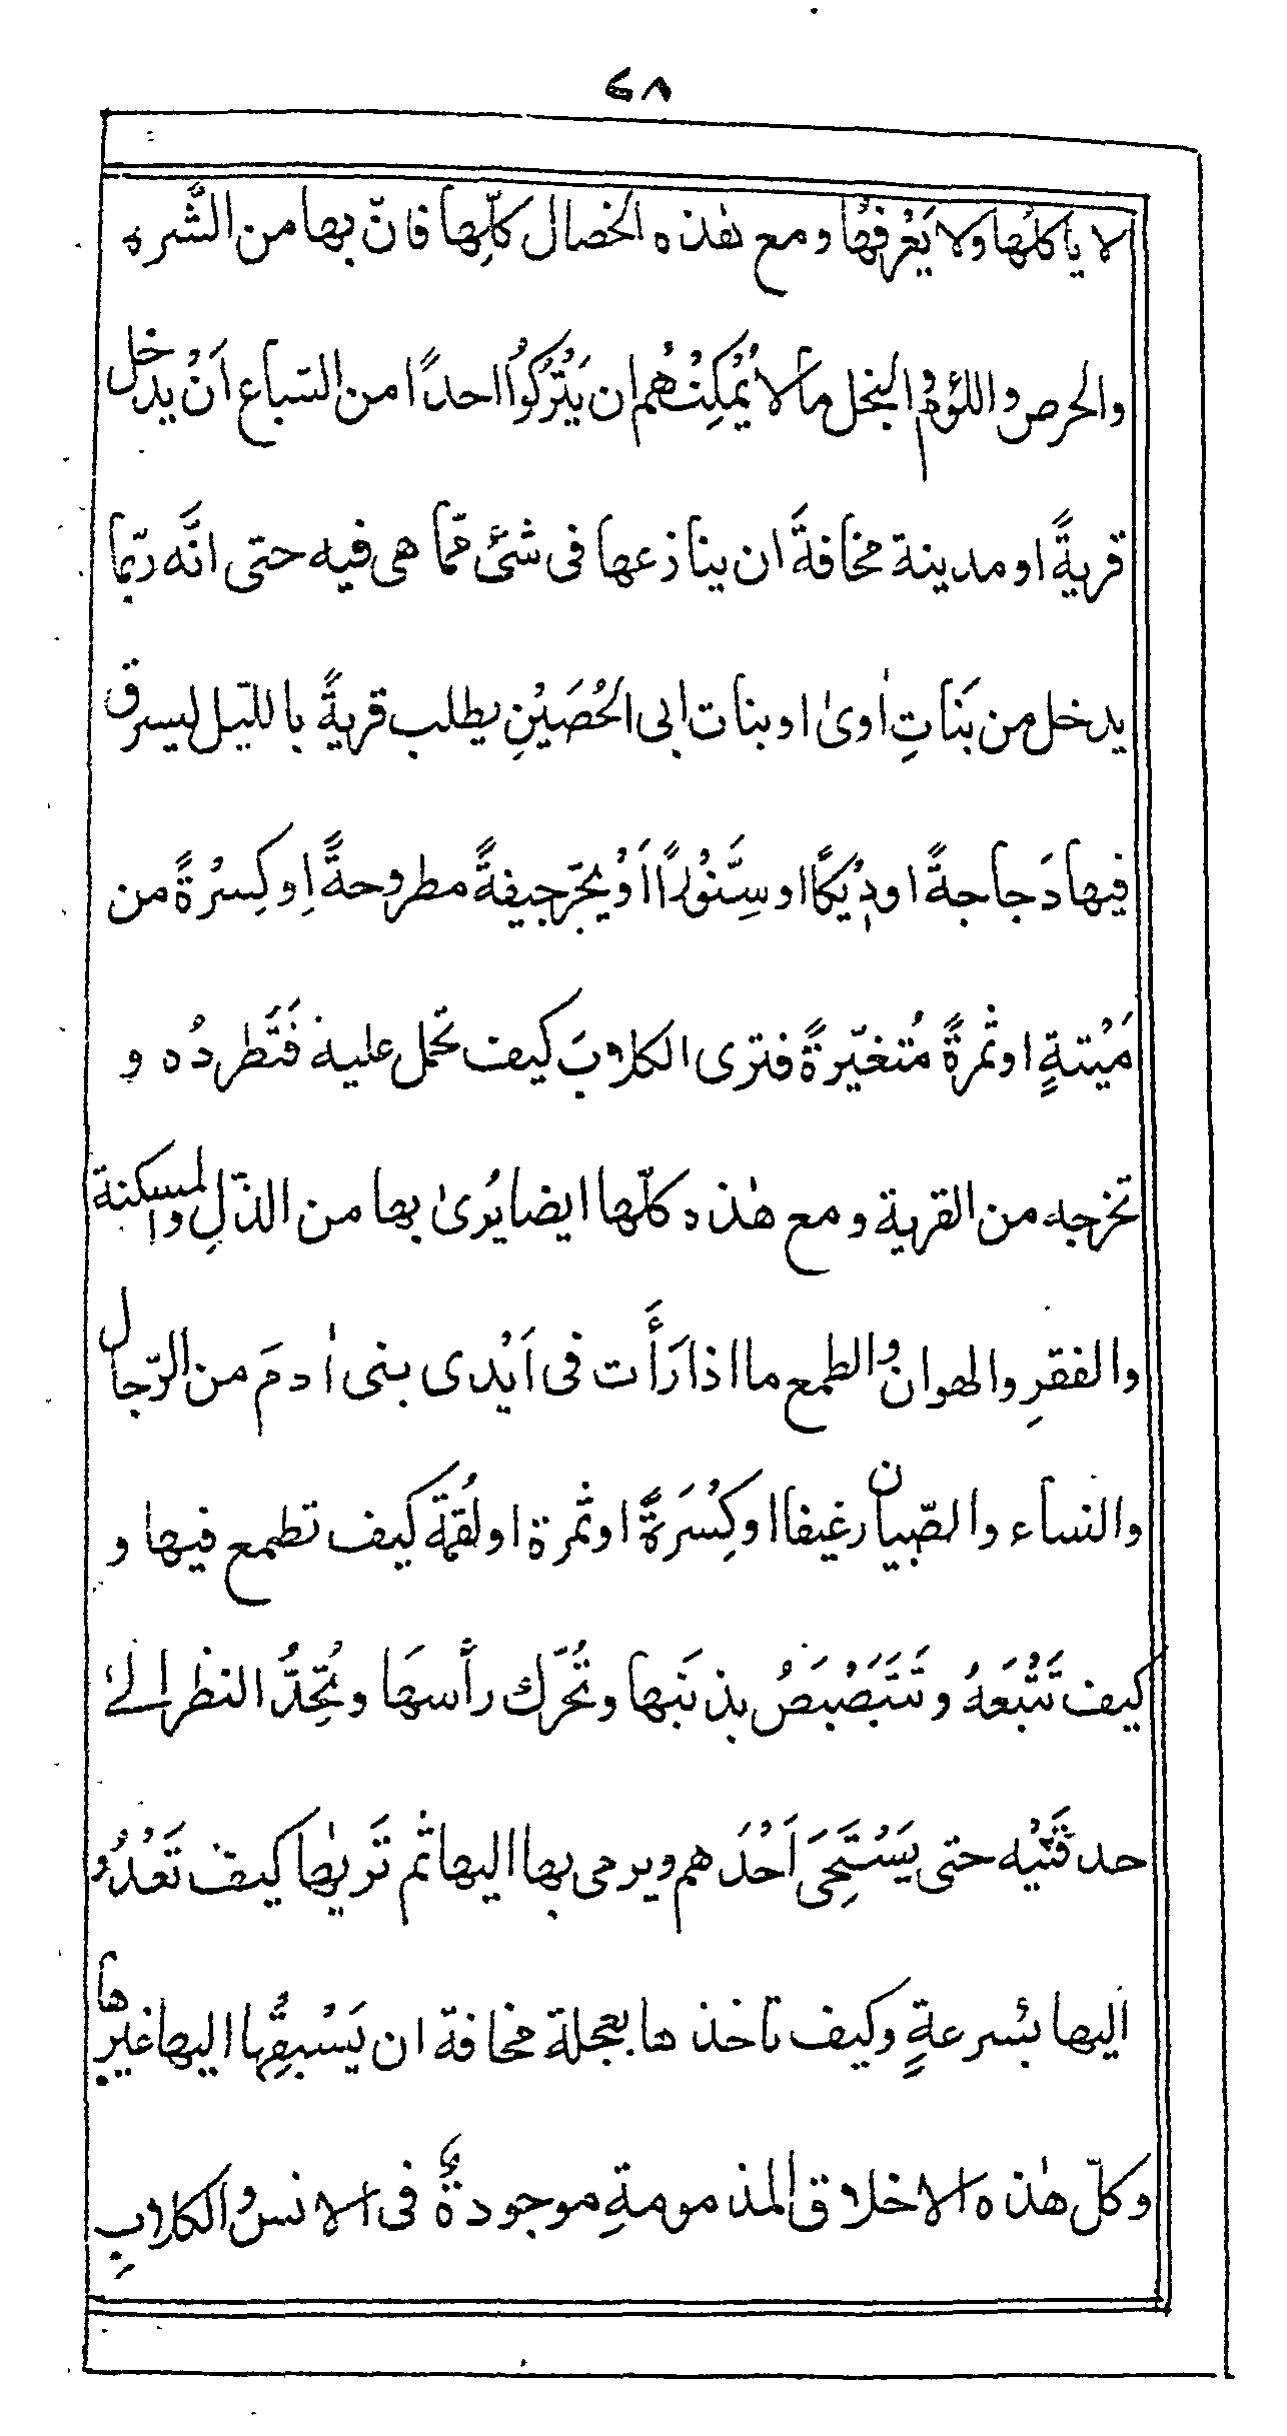 ٤٨
لا ياكلُها ولا يَعْرِفُها ومع هٰذه الخصال كلِّها فانّ بها من الشَّره
والحرص واللؤم والبخل ما لا يُمْكِنُهُم ان يَتْرُكُوا احدًا من السّباع اَنْ يدخل
قريةً او مدينة مخافةً ان ينازعها فى شىٔ ممّا هى فيه حتى انَّه ربّما
يدخل من بَنَاتِ اٰوىٰ او بنات ابى الحُصَيْنِ يطلب قريةً بالليل ليسرق
فيها دَجاجةً او دِيْكًا او سِنَّوْرًا اَوْ يجرّ جيفةً مطروحةً اَو كِسْرَةً من
مَيْتةٍ او ثمرةً مُتغيّرةً فترى الكلابَ كيف تحمل عليه فَتَطردُه و
تخرجه من القرية ومع هٰذه كلّها ايضا يُرىٰ بها من الذلّ والمسكنة
والفقرِ والهوان والطمع ما اذا رَأَت فى اَيْدى بنى اٰدمَ من الرّجال
والنساء والصّبيان رغيفا او كِسْرَةً او ثمرة او لُقمة كيف تطمع فيها و
كيف تَتْبَعهُ وتَتَبَصْبَصُ بذنَبها وتُحرّك رأسهَا وتُحِدُّ النظر الىٰ
حدقَتَيْه حتى يَسْتَحِىَ اَحْدَهم ويرمى بها اليها ثم تَريٰها كيف تَعْدُو
اليها بسُرعةٍ وكيف تاخذها بعجلة مخافة ان يَسْبِقها اليها غيرها
وكلّ هٰذه الاخلاق المذمومةِ موجودةٌ فى الانس والكلابِ